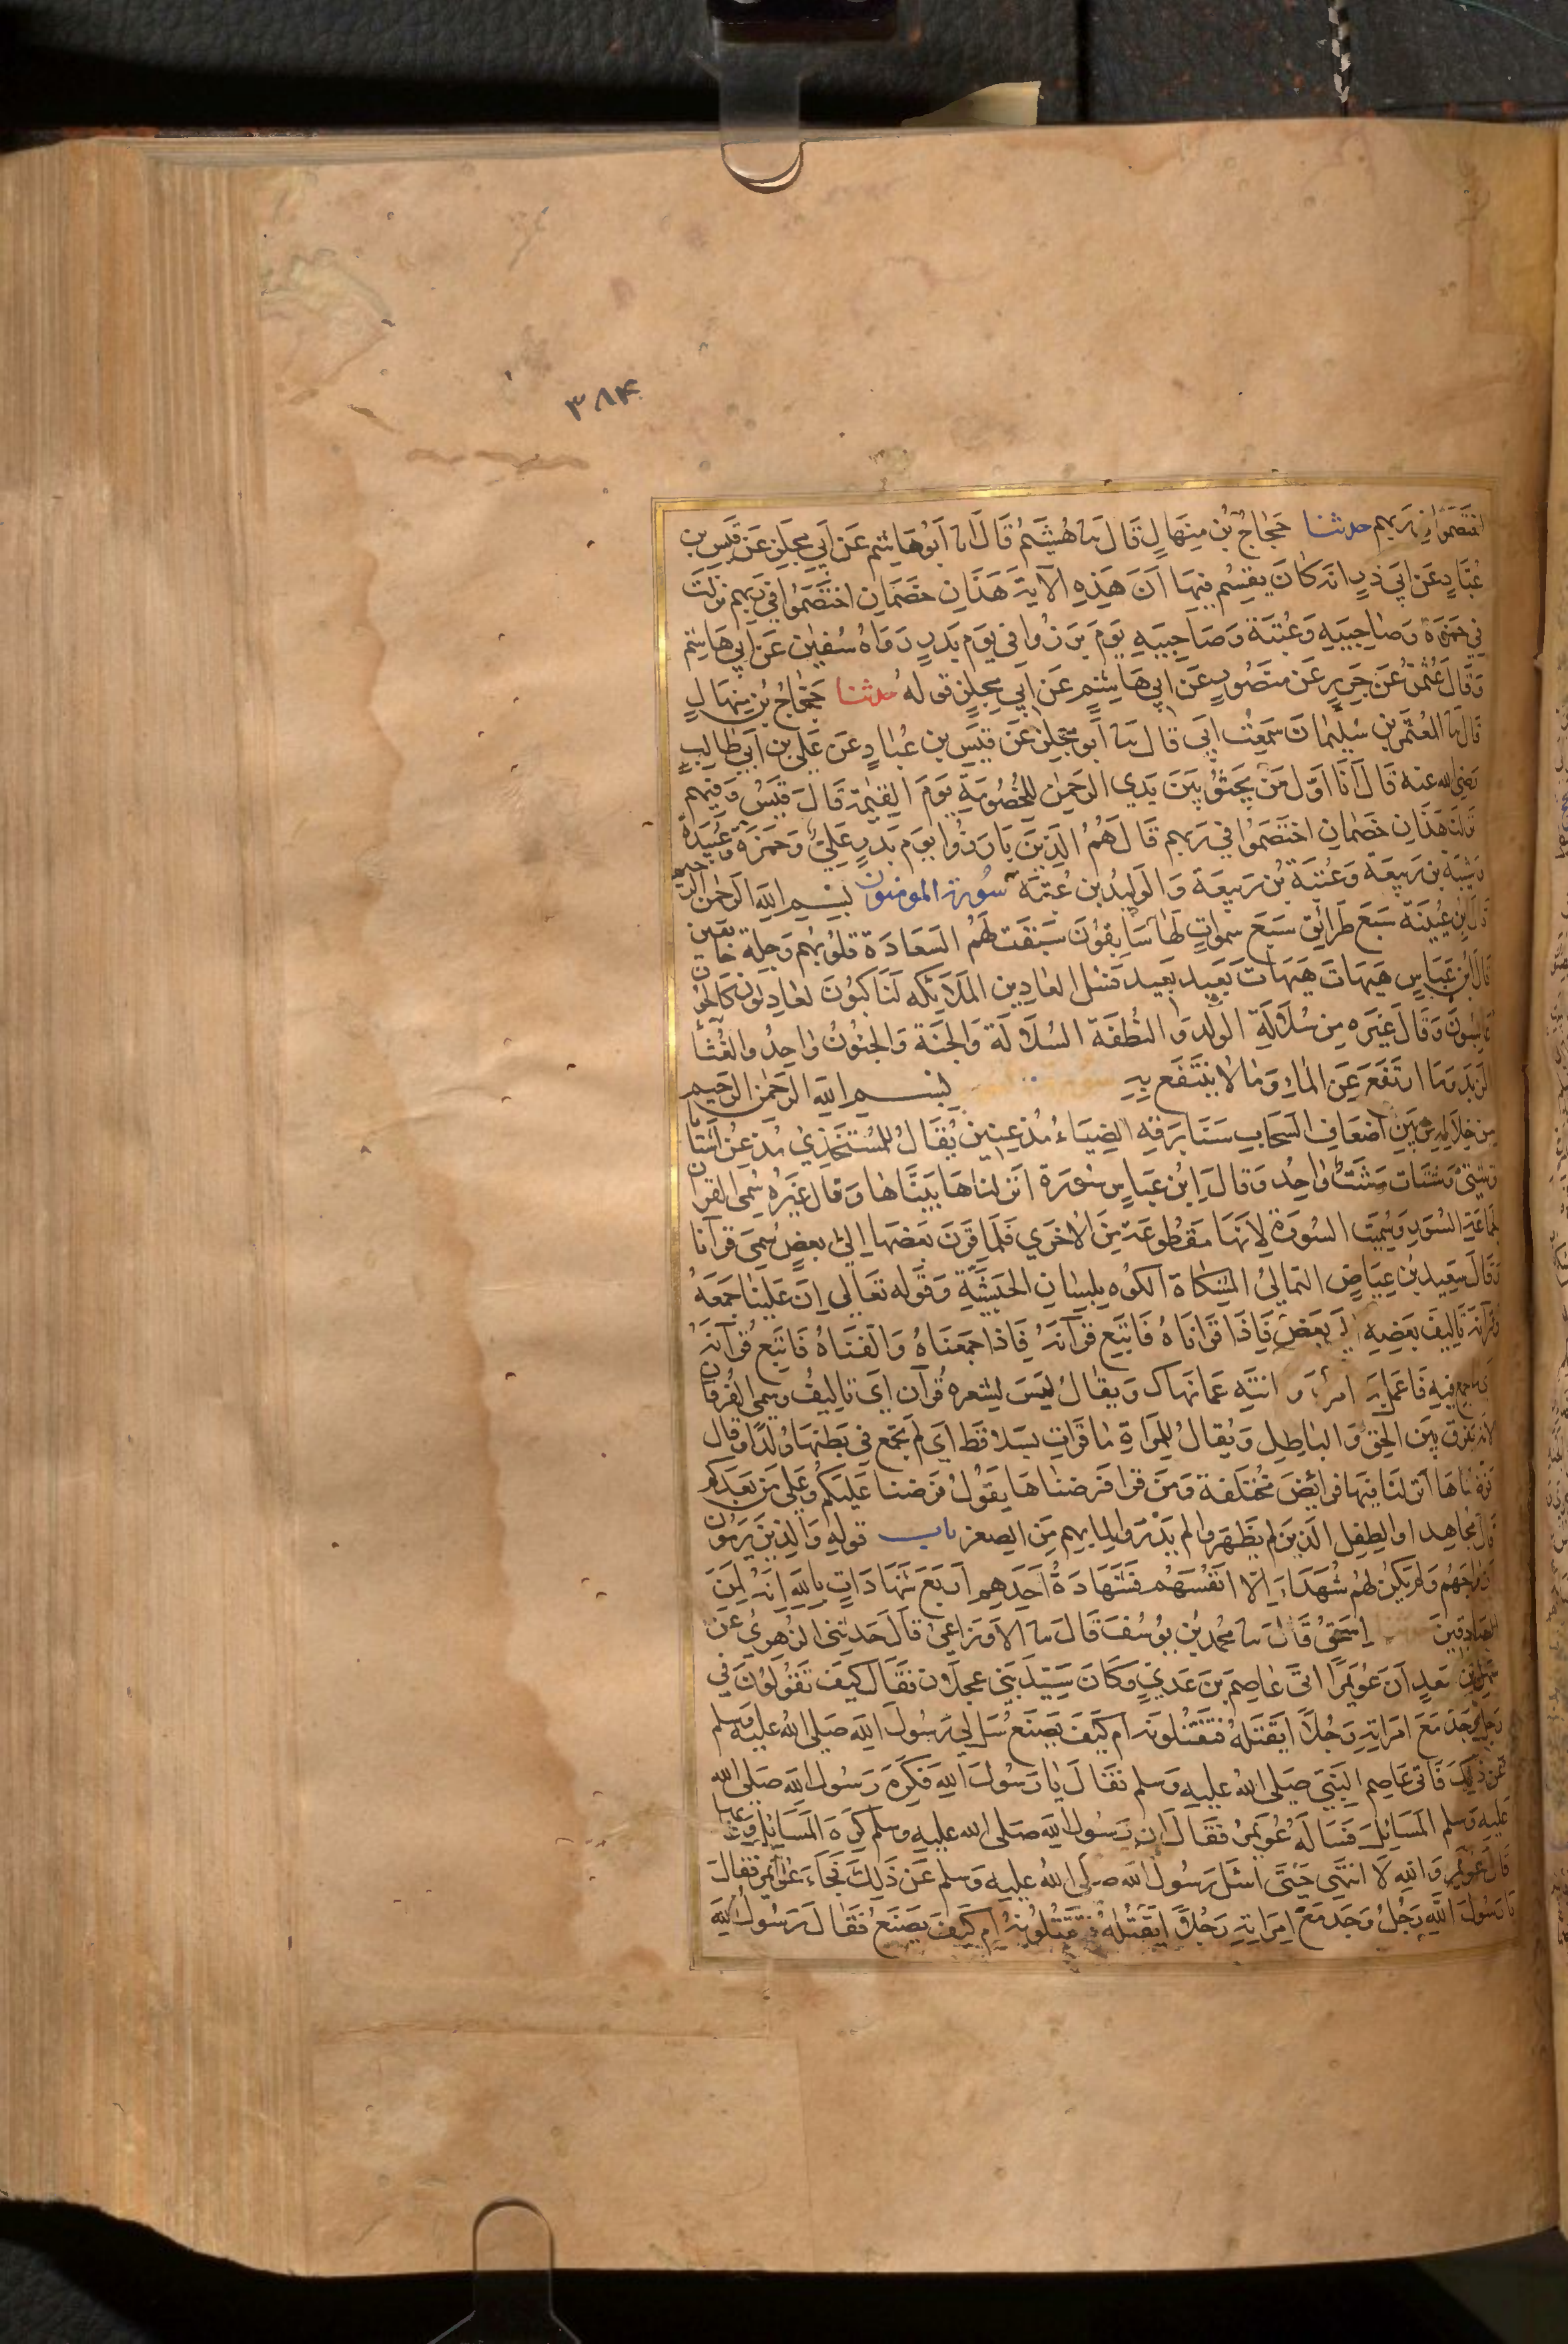 ۳۸۴
اختصموا في ربهم حدثنا حَجّاجُ بْنُ مِنهَالٍ قَالَ نا هُشَيْمٌ قَالَ انا اَبُو هَاشِم عَن اَبِي مِجلَزٍ عَن قَيسِ بنِ
عُبَادٍ عَن اَبِي ذرٍ انه كَانَ يقسِمُ فِيهَا اَنَّ هَذِهِ الآيةَ هَذَانِ خَصْمَانِ اختَصَمُوا فِي رَبِهِم نزَلَت
فِي حَمزَةَ وَصَاحِبَيهِ وَعُتبَةَ وَصَاحِبَيهِ يَومَ بَرَزُوا فِي يَومِ بَدرٍ رَوَاهُ سُفيٰن عَن اَبِي هَاشِم
وَقَالَ عُثمٰنُ عَن جَرِيرٍ عَن مَنصُورٍ عَن اَبِي هَاشِمٍ عَن اَبِي مِجلزٍ قوله حدثنا حَجّاجُ بْنُ مِنهَالٍ
قَالَ نا المُعتَمِرُ بن سُلَيمَانَ سَمِعتُ اَبِي قَالَ نا اَبو مِجلزٍ عَن قَيسِ بنِ عُبَادٍ عَن عَلِي بنِ اَبِي طَالِبٍ
رَضِي الله عَنه قَالَ اَنَا اَوّلُ مَن يَجثُو بَينَ يَدَيِ الرَحمٰنِ لِلخُصُومَةِ يَومَ القِيٰمَة قَالَ قَيسٌ وَفِيهِم
نزلَت هَذَانِ خَصْمَانِ اختَصَمُوا فِي رَبِهِم قَالَ هُمُ الذِينَ بَارَزُوا يَومَ بَدرٍ عَلِيٌّ وَحَمزَة وَعُبَيدَة
وَشَيبَة بن رَبِيعَة وَعُتبَة بن رَبِيعَة وَالوَلِيدُ بن عُتبَة سُورة المومنون بِسْمِ اللهِ الرَحمٰنِ الرحيم
قَالَ ابن عُيَينَة سَبعَ طَرَائِق سَبعَ سمواتٍ لَهَا سَابِقُونَ سَبَقَت لَهُم السَعَادَة قلُوبُهُم وَجِلَة خائفين
قَالَ ابْنُ عَبَاسٍ هَيهَاتَ هَيهَات بَعِيد بَعِيد فَسئل العَادِين المَلَائِكه لَنَاكِبُونَ لعَادِلون كَالِحُون
عَابِسُونَ وَقَالَ غَيرُه مِن سُلَالَةٍ الوَلَد وَالنُطفَة السُلَالَة وَالجِنَة وَالجنُونُ وَاحِدٌ والغُثَاءُ
الزبَد وَمَا ارتَفَعَ عَنِ المَاءِ وَمَا لا يُنتَفَع بِهِ بِسْمِ اللهِ الرَحمٰنِ الرَحِيمِ
مِن خِلَالِهِ مِن بَينِ اَضعَافِ السَحَابِ سَنَا بَرقِه الضِيَاءُ مُذعِنِينَ يُقَالُ لِلمُستَخذِي مُذعِنٌ اَشتَاتا
وَشَتّى وَشَتَات وَشَتٌّ وَاحِدٌ وَقَالَ ابْنُ عَبَاسٍ سُورَة انزلنَاهَا بَيّنَاهَا وَقَالَ غَيرُه سُمِي القُرآن
لِجَمَاعَةِ السُوَرِ وَسُمِيَت السُورَة لِاَنَهَا مَقطُوعَة مِنَ الاخرَى فَلَمَا قُرِنَ بَعضُهَا اِلَى بَعضٍ سُمِيَ قُرآنا
وَقَالَ سَعِيد بن عِيَاضٍ الثمَالِيُّ المِشكَاة الكُوه بِلِسَانِ الحَبَشَةِ وَقَوله تَعَالَى اِنَّ عَلَينَا جَمعَهُ
وَقُرآنَه تَالِيفَ بَعضِهِ اِلَى بَعضٍ فَاِذَا قَرَانَاهُ فَاتَبِع قُرآنَهُ فَاِذَا جَمَعنَاهُ وَالَفنَاهُ فَاتَبِع قُرآنَهُ
اي مَا جمع فِيهِ فَاعمَل بِهَ امرَكَ وَانتَهِ عَمَا نَهَاك وَيقَالُ لَيسَ لِشِعرِه قُرآن اَي تَالِيفٌ وسمي الفُرقَان
لانه يفرق بَينَ الحَقِ وَالبَاطِلِ وَيُقَالُ لِلمَراةِ مَا قَرَات بسَلا قَط اَي لَم تجمَع فِي بَطنِهَا وَلَدًا وقال
فَرَضنَاهَا اَنزَلنَا فِيهَا فَرَائِضَ مُختَلِفَة وَمَن قَرَا فَرَضنَاهَا يَقُولُ فَرَضنَا عَلَيكُم وَعَلَى مَن بَعدَكم
قَالَ مُجَاهِد اوِ الطِفلِ الذِينَ لَم يَظهَرُوا لَم يَدرُوا لِمَا بِهِم مِنَ الصِغَر باب قوله وَالذِينَ يَرمُون
اَزوَاجَهُم وَلَم يَكُن لَهُم شُهَدَاءُ اِلَّا اَنفُسُهُم فَشَهَادَةُ اَحَدِهِم اَربَعَ شَهَادَاتٍ بِاللهِ اِنَهُ لَمِنَ
الصَادِقِينَ اِسحقُ قَالَ نا مُحمد بْنُ يُوسُفَ قَالَ نا الاَوزَاعِيُّ قَالَ حَدثَنِي الزُهرِيُّ عن
سَهلِ بن سَعدٍ اَنَ عُوَيمِرًا اَتَى عَاصِمَ بنَ عَدِيٍّ وَكَانَ سَيّدَ بَنِي عجلَان فَقَالَ كَيفَ تَقُولُونَ فِي
رَجُلٍ وَجَدَ مَعَ امرَاتِهِ رَجُلًا اَيَقتُلُهُ فَتَقتُلُونَهُ ام كَيفَ يَصنَعُ سَل لِي رَسُولَ اللهِ صَلى اللهُ عليه وسلم
عَن ذَلِكَ فَاَتَى عَاصِم النَبِيَّ صَلى اللهُ عليهِ وَسلم فَقَالَ يَا رَسُولَ اللهِ فَكَرِهَ رَسُولُ اللهِ صَلى الله
عليه وَسلم المَسَائِلَ فَسَالَهُ عُوَيمِرٌ فَقَالَ ان رَسُولَ اللهِ صَلى الله عليهِ وسلم كَرِهَ المَسَائِلَ وَعَابها
قَالَ عُوَيمِرٌ وَاللهِ لَا انتَهِي حَتّى اَسئَل رَسُولَ اللهِ صَلى اللهُ عليهِ وَسلم عَن ذَلِكَ فَجَاءَ عُوَيمِرٌ فَقَالَ
يَا رَسُولَ اللهِ رَجُلٌ وَجَدَ مَعَ امرَاتِهِ رَجُلًا اَيَقتُلُهُ فَتَقتُلُونَهُ ام كَيفَ يَصنَعُ فَقَالَ رَسُولُ اللهِ